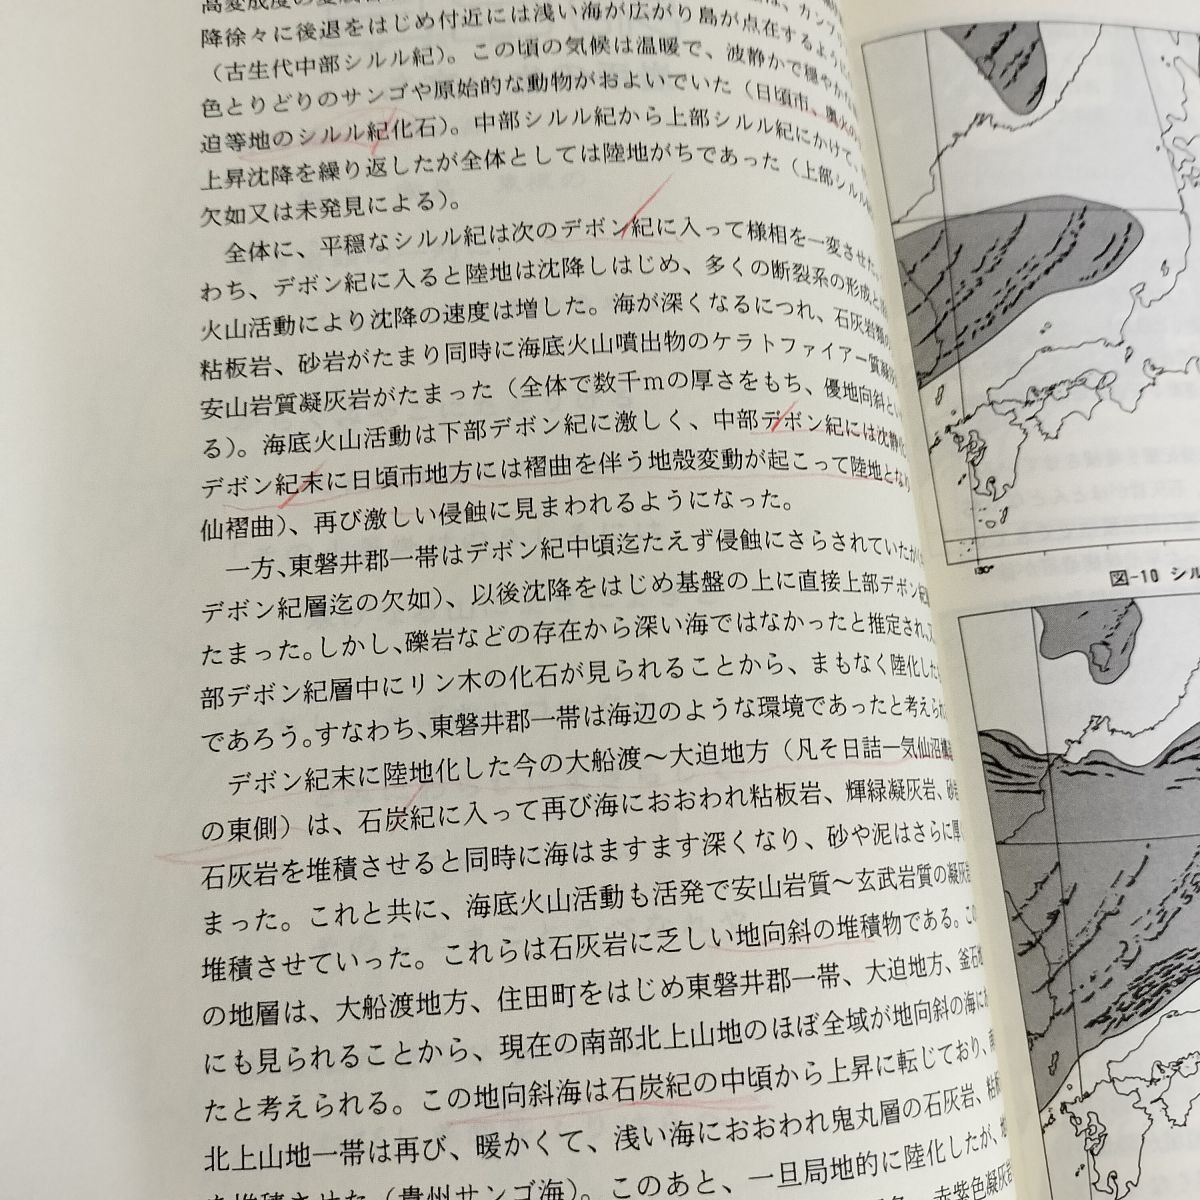 高変成度の変成岩
は、カンブ
降徐々に後退をはじめ付近には浅い海が広がり島が点在するように
（古生代中部シルル紀）。この頃の気候は温暖で、波静かで穏やかな
色とりどりのサンゴや原始的な動物がおよいでいた（日頃市、奥火の
迫等地のシルル紀化石）。中部シルル紀から上部シルル紀にかけて、
上昇沈降を繰り返したが全体としては陸地がちであった（上部シルル
欠如又は未発見による）。
全体に、平穏なシルル紀は次のデボン紀に入って様相を一変させた。
わち、デボン紀に入ると陸地は沈降しはじめ、多くの断裂系の形成と
火山活動により沈降の速度は増した。海が深くなるにつれ、石灰岩類の
粘板岩、砂岩がたまり同時に海底火山噴出物のケラトファイアー質凝灰
安山岩質凝灰岩がたまった（全体で数千mの厚さをもち、優地向斜とい
る）。海底火山活動は下部デボン紀に激しく、中部デボン紀には沈静化
デボン紀末に日頃市地方には褶曲を伴う地殻変動が起こって陸地となり
仙褶曲）、再び激しい侵蝕に見まわれるようになった。
一方、東磐井郡一帯はデボン紀中頃迄たえず侵蝕にさらされていたが
デボン紀層迄の欠如）、以後沈降をはじめ基盤の上に直接上部デボン紀
たまった。しかし、礫岩などの存在から深い海ではなかったと推定され、又
部デボン紀層中にリン木の化石が見られることから、まもなく陸化した
であろう。すなわち、東磐井郡一帯は海辺のような環境であったと考えられ
デボン紀末に陸地化した今の大船渡～大迫地方（凡そ日詰―気仙沼構造
の東側）は、石炭紀に入って再び海におおわれ粘板岩、輝緑凝灰岩、砂岩
石灰岩を堆積させると同時に海はますます深くなり、砂や泥はさらに厚
まった。これと共に、海底火山活動も活発で安山岩質～玄武岩質の凝灰岩
堆積させていった。これらは石灰岩に乏しい地向斜の堆積物である。この
の地層は、大船渡地方、住田町をはじめ東磐井郡一帯、大迫地方、釜石地
にも見られることから、現在の南部北上山地のほぼ全域が地向斜の海にお
たと考えられる。この地向斜海は石炭紀の中頃から上昇に転じており、南
北上山地一帯は再び、暖かくて、浅い海におおわれ鬼丸層の石灰岩、粘板
を堆積させた（貴州サンゴ海）。このあと、一旦局地的に陸化したが、
赤紫色凝灰岩
130°
図-10 シル